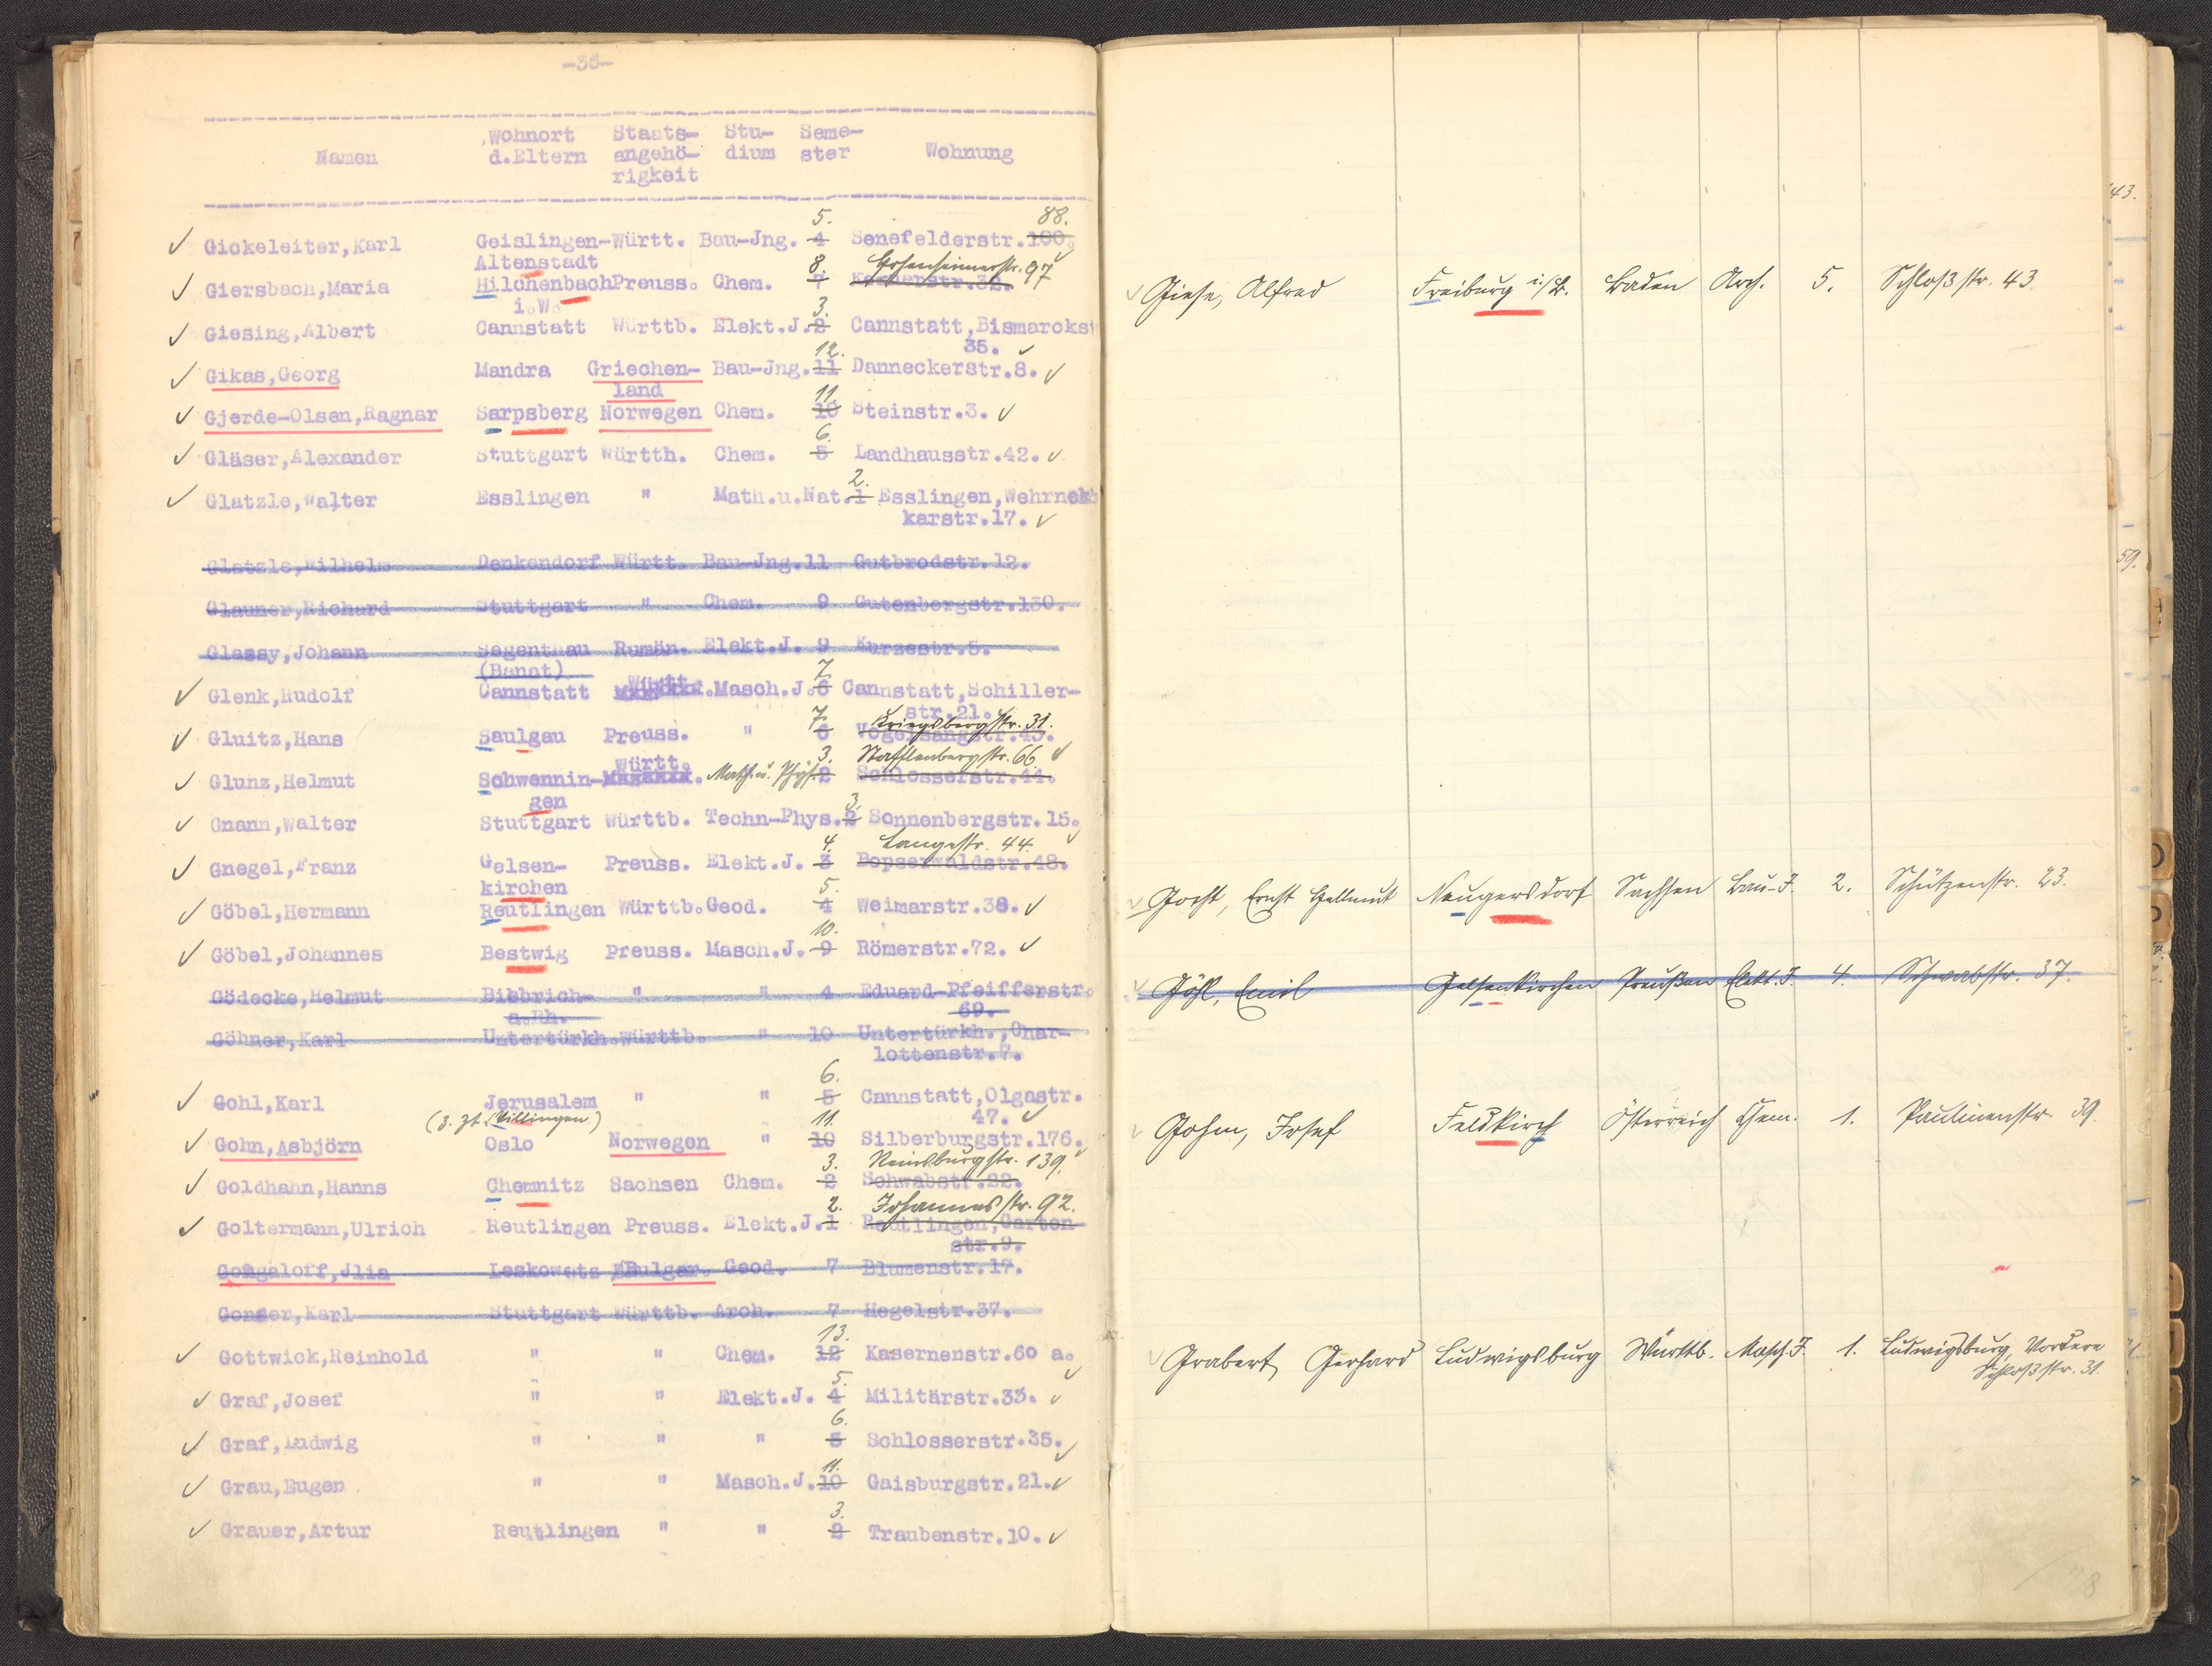 -36-
Namen Wohnort d.Eltern Staats- angehö- rigkeit Stu- dium Seme- ster Wohnung
5. 88.
Gickeleiter,Karl Geislingen- Württ. Bau-Jng. 4 Senefelderstr.100.
Altenstadt 8. 97
Giersbach,Maria Hilchenbach Preuss. Chem. 7
i.W. 3.
Giesing,Albert Cannstatt Württb. Elekt.J. 2 Cannstatt,Bismarckst
35.
12.
Gikas,Georg Mandra Griechen- Bau-Jng. 11 Danneckerstr.8.
land 11.
Gjerde-Olsen,Ragnar Sarpsberg Norwegen Chem. 10 Steinstr.3.
6.
Gläser,Alexander Stuttgart Württh. Chem. 5 Landhausstr.42.
2.
Glatzle,Walter Esslingen " Math.u.Nat. 1 Esslingen,Wehrnek
karstr.17.
Glatzle,Wilhelm Denkendorf Württ. Bau-Jng. 11 Gutbrodstr.12.
Glauner,Richard Stuttgart " Chem. 9 Gutenbergstr.130.
Glassy,Johann Segenthau Rumän. Elekt.J. 9 Kurzestr.5.
(Banat) 7
Glenk,Rudolf Cannstatt Württ. Masch.J. 6 Cannstatt,Schiller-
str.21.
7. Kriegsbergstr. 31.
Gluitz,Hans Saulgau Preuss. " 6 Vogelsangstr.43.
Württ. 3. Stafflenbergstr. 66.
Glunz,Helmut Schwennin- Math. u. Phys. 2 Schlosserstr.44.
gen 3.
Gnann,Walter Stuttgart Württb. Techn-Phys. 2 Sonnenbergstr.15.
4. Langestr. 44.
Gnegel,Franz Gelsen- Preuss. Elekt.J. 3 Bopserwaldstr.48.
kirchen 5.
Göbel,Hermann Reutlingen Württb. Geod. 4 Weimarstr.38.
10.
Göbel,Johannes Bestwig Preuss. Masch.J. 9 Römerstr.72.
Gödecke,Helmut Biebrich- " " 4 Eduard-Pfeifferstr.
a.Rh. 69.
Göhner,Karl Untertürkh. Württb. " 10 Untertürkh.,Char-
lottenstr.7.
6.
Gohl,Karl Jerusalem " " 5 Cannstatt,Olgastr.
(z. Zt. Villingen) 11. 47.
Gohn,Asbjörn Oslo Norwegen " 10 Silberburgstr.176.
3. Reinsburgstr. 139.
Goldhahn,Hanns Chemnitz Sachsen Chem. 2 Schwabstr.22.
2. Johannesstr. 92.
Goltermann,Ulrich Reutlingen Preuss. Elekt.J. 1 Reutlingen,Garten-
str.9.
Gongaloff,Jlia Leskowetz Bulgar. Geod. 7 Blumenstr.17.
Gonser,Karl Stuttgart Württb. Arch. 7 Hegelstr.37.
13.
Gottwick,Reinhold " " Chem. 12 Kasernenstr.60 a.
5.
Graf,Josef " " Elekt.J. 4 Militärstr.33.
6.
Graf,Ludwig " " " 5 Schlosserstr.35.
11.
Grau,Eugen " " Masch.J. 10 Gaisburgstr.21.
3.
Grauer,Artur Reutlingen " " 2 Traubenstr.10.
Giese, Alfred Freiburg i/B. Baden Arch. 5. Schloßstr. 43.
Gocht, Ernst Hellmut Neugersdorf Sachsen Bau-J. 2. Schützenstr. 23.
Göhl, Emil Gelsenkirchen Preußen Elekt. J. 4. Schwabstr. 37.
Gohm, Josef Feldkirch Österreich Chem. 1. Paulinenstr. 39.
Grabert, Gerhard Ludwigsburg Württb. Masch. J. 1. Ludwigsburg, Vordere
Schloßstr. 31.
43.
59.